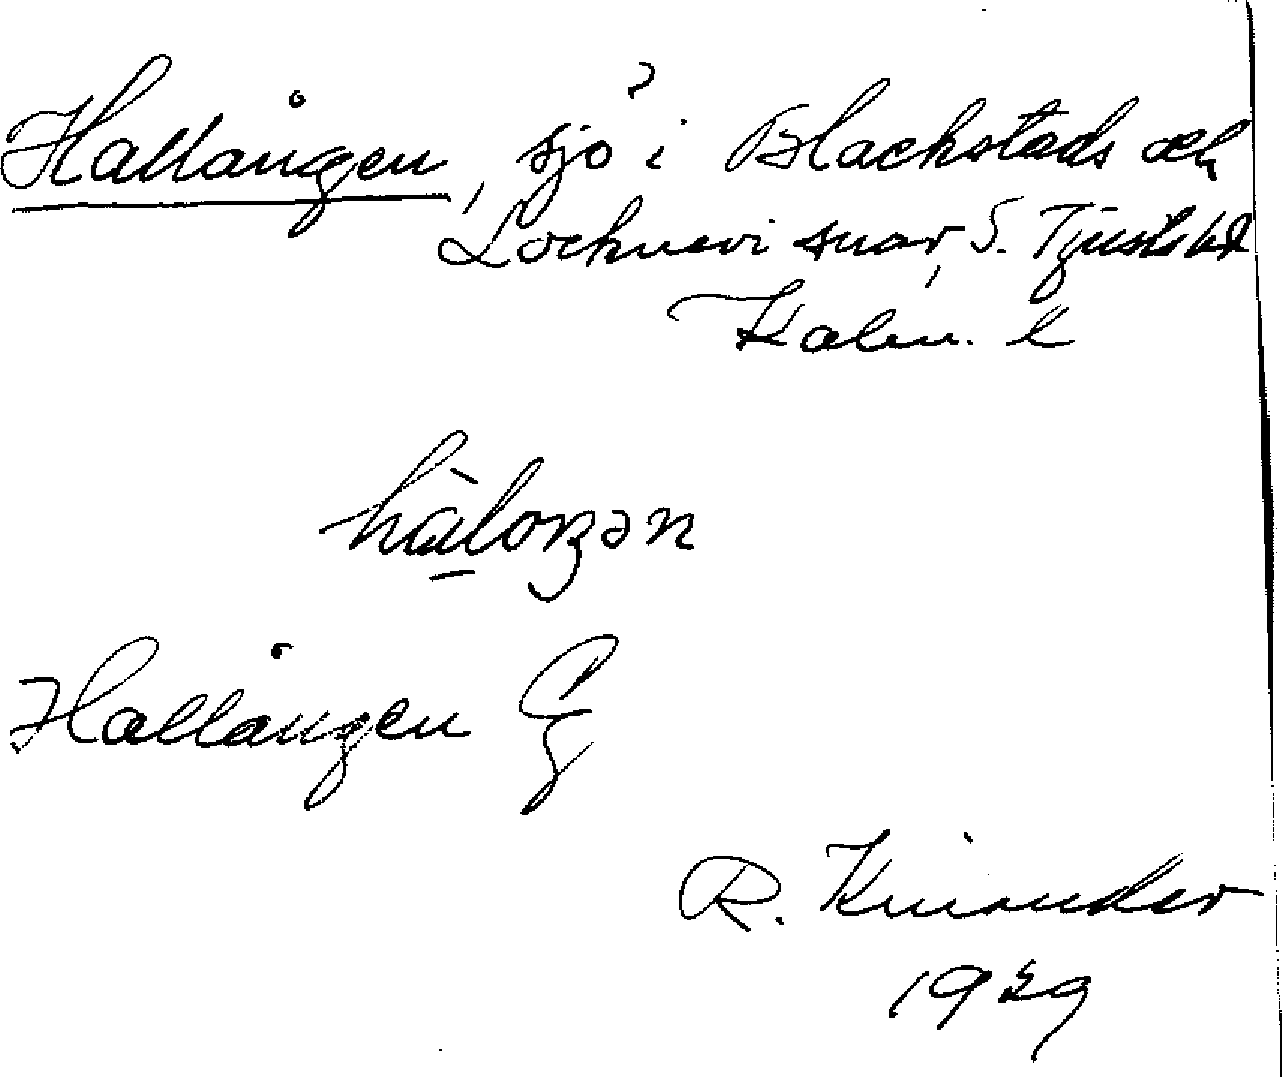 Hallången, sjö i Blackstads och
Locknevi snar, S. Tjusts hd
Kalm. l
hàloŋən
Hallången G
R. Kinander
1929